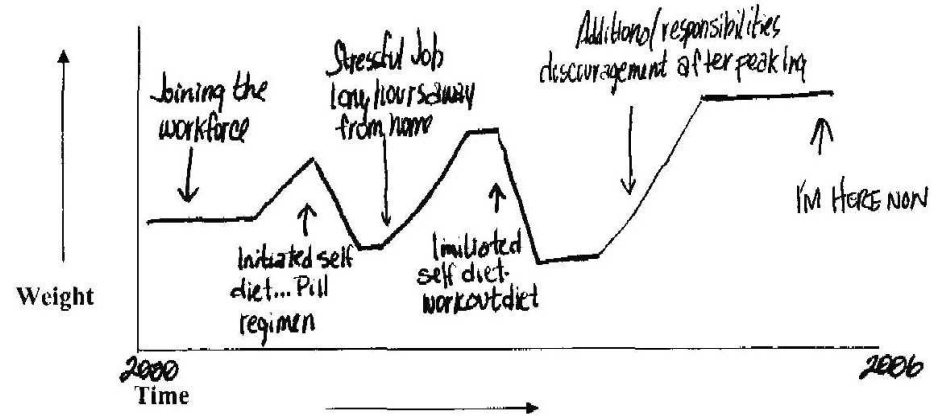 Joining the
workforce
Stressful Job
long hours away
from home
Additional responsibilities
discouragement after peaking
I'M HERE NOW
Initiated self
diet... Pill
regimen
Imitiated
self diet-
workout diet
Weight
2000
2006
Time